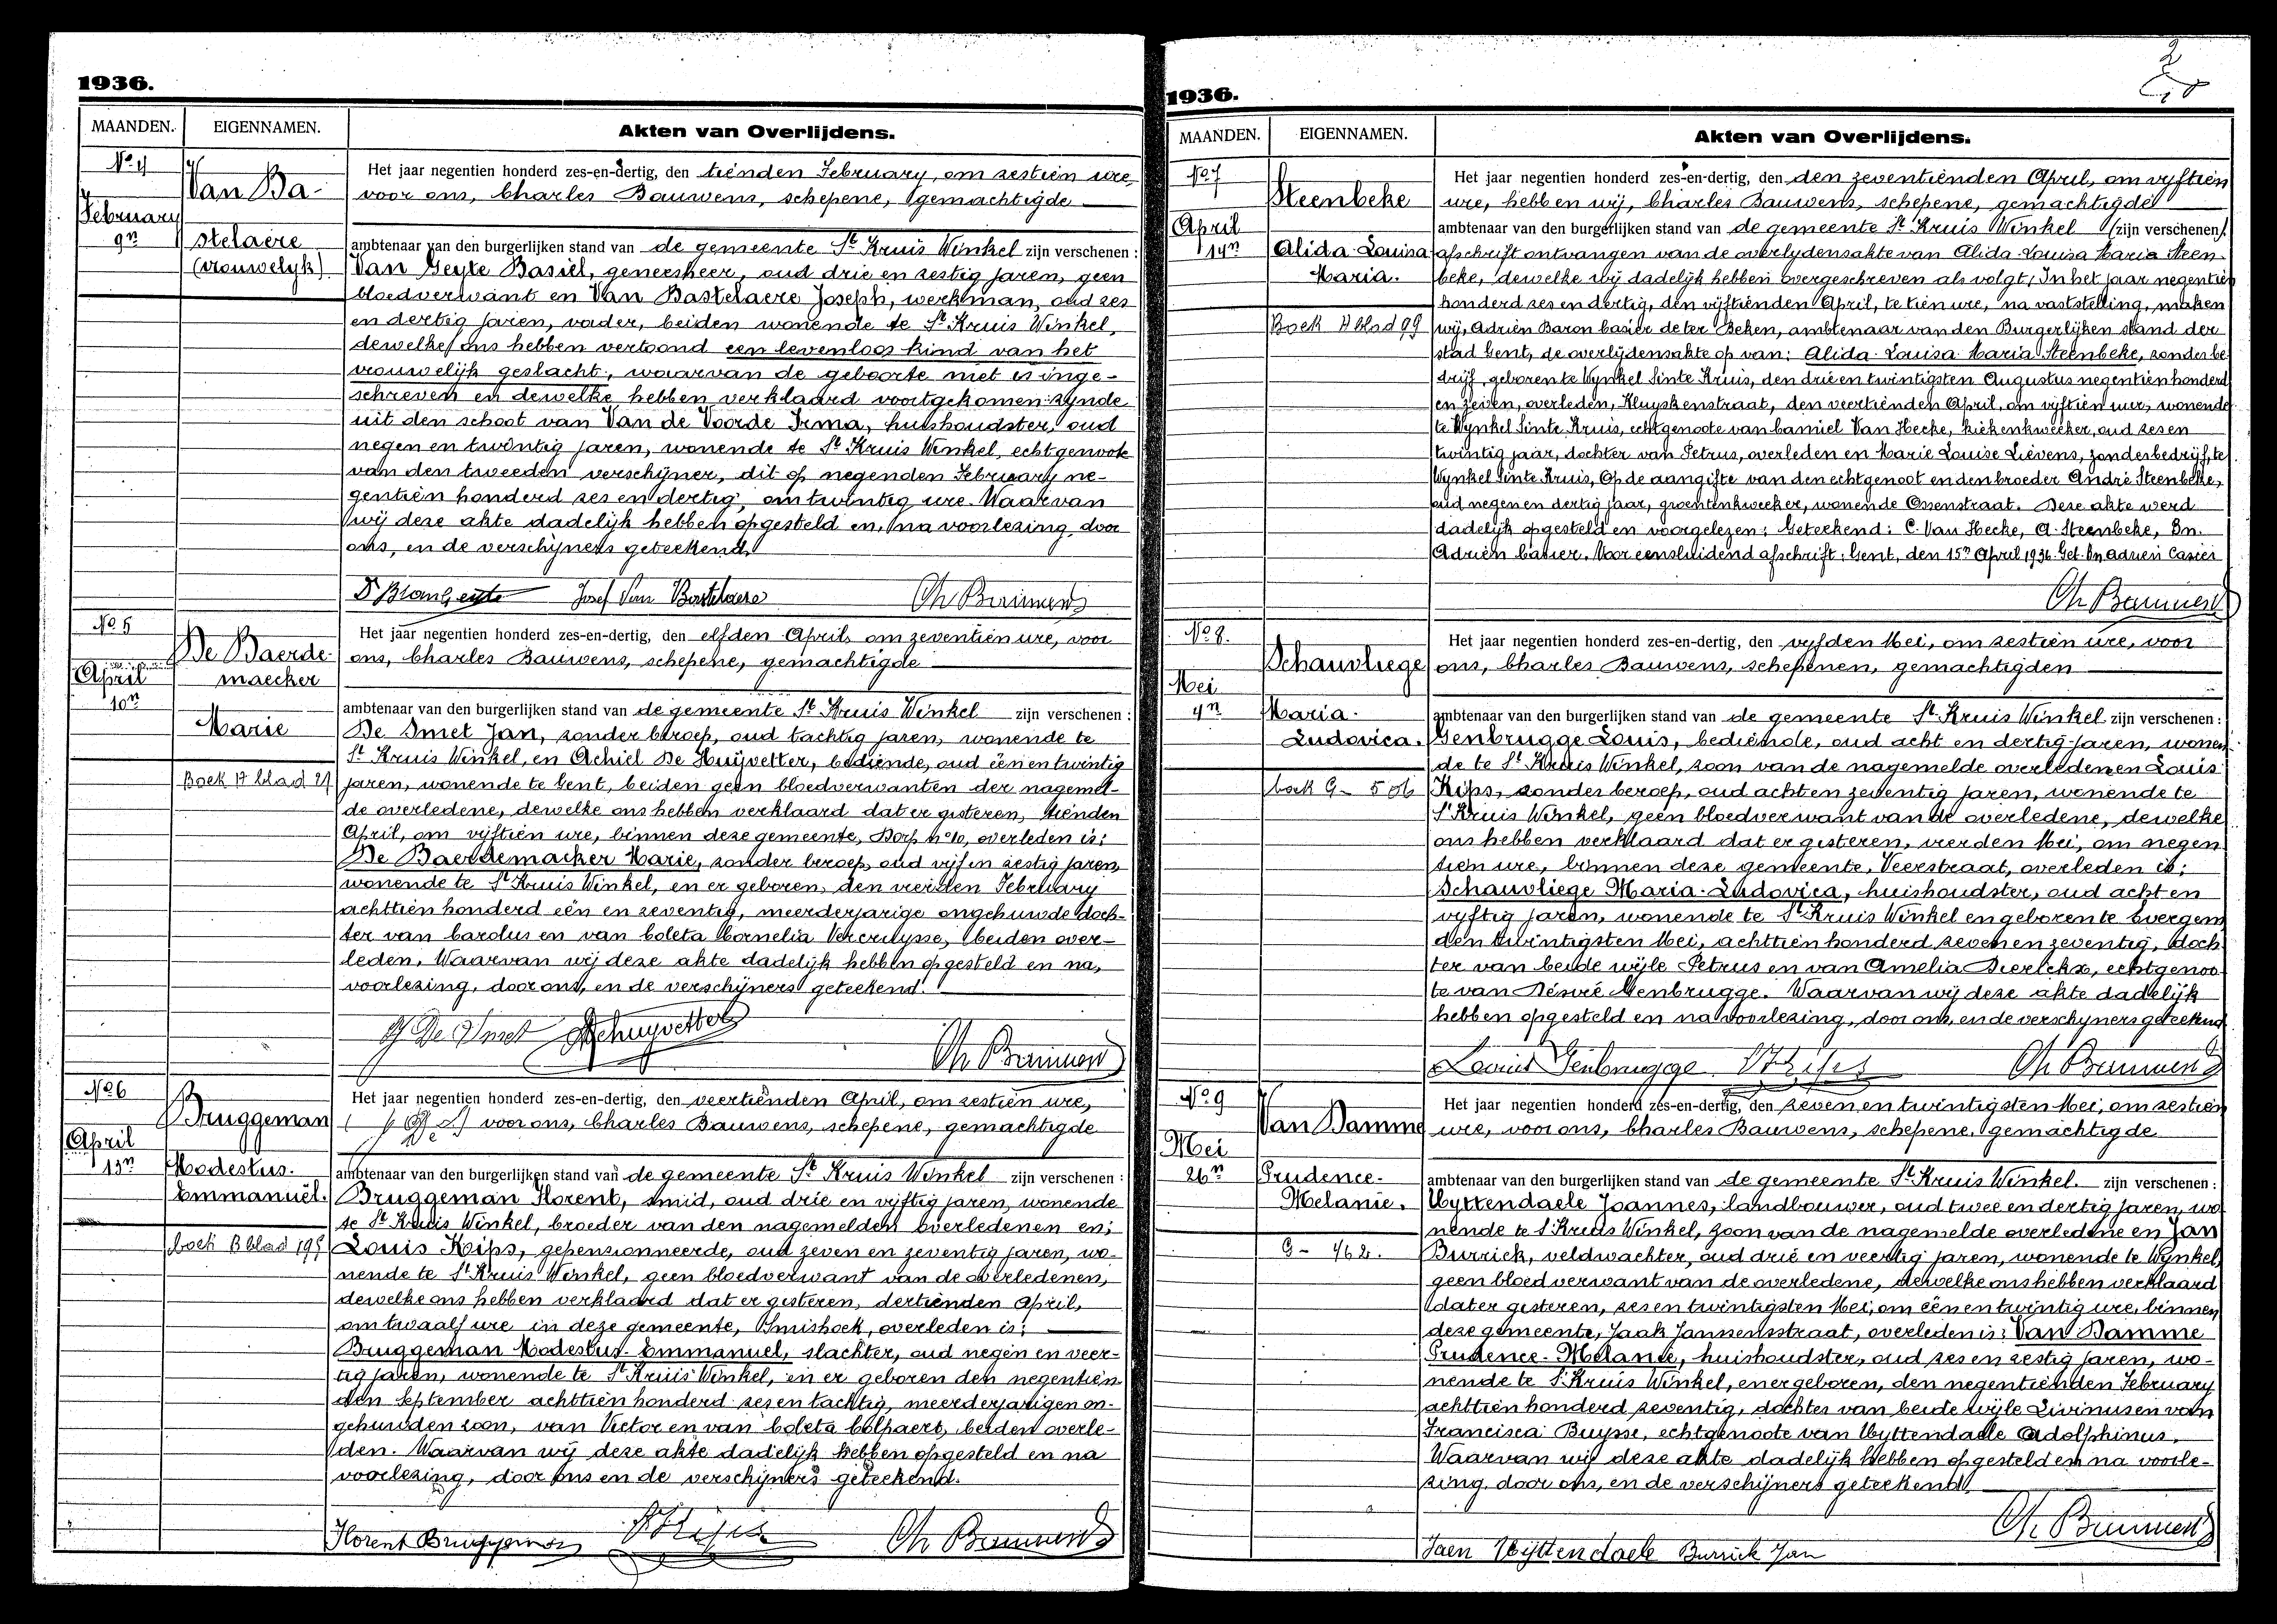 1936.
MAANDEN.
EIGENNAMEN.
Akten van Overlijdens.
No 4
Van Ba-
February
9n
stelaere
(vrouwelyk)
Het jaar negentien honderd zes-en-dertig, den tienden February, om zestien ure,
voor ons, Charles Bauwens, schepene, gemachtigde
ambtenaar van den burgerlijken stand van de gemeente St Kruis Winkel zijn verschenen :
Van Geyte Basiel, geneesheer, oud drie en zestig jaren, geen
bloedverwant en Van Bastelaere Joseph, werkman, oud zes
en dertig jaren, vader, beiden wonende te St Kruis Winkel,
dewelke ons hebben vertoond een levenloos kind van het
vrouwelijk geslacht, waarvan de geboorte niet is inge-
schreven en dewelke hebben verklaard voortgekomen zynde
uit den schoot van Van de Voorde Irma, huishoudster, oud
negen en twintig jaren, wonende te St Kruis Winkel, echtgenoote
van den tweeden verschijner, dit op negenden February ne-
gentien honderd zes en dertig, om twintig ure. Waarvan
wij deze akte dadelijk hebben opgesteld en, na voorlezing door
ons, en de verschijners geteekend.
Josef Van Bastelaere Ch Bauwens
No 5
De Baerde-
maecker
April
10n
Marie
Boek 17 blad 27
Het jaar negentien honderd zes-en-dertig, den elfden April, om zeventien ure, voor
ons, Charles Bauwens, schepene, gemachtigde
ambtenaar van den burgerlijken stand van de gemeente St Kruis Winkel zijn verschenen :
De Smet Jan, zonder beroep, oud tachtig jaren, wonende te
St Kruis Winkel, en Achiel De Huijvetter, bediende, oud één en twintig
jaren, wonende te Gent, beiden geen bloedverwanten der nagemel-
de overledene, dewelke ons hebben verklaard dat er gisteren, tienden
April, om vijftien ure, binnen deze gemeente, Dorp no 10, overleden is:
De Baerdemacker Marie, zonder beroep, oud vijf en zestig jaren,
wonende te St Kruis Winkel, en er geboren, den vierden February
achttien honderd één en zeventig, meerderjarige ongehuwde doch-
ter van Carolus en van Coleta Cornelia Vercruysse, beiden over-
leden. Waarvan wij deze akte dadelijk hebben opgesteld en na,
voorlezing, door ons, en de verschijners geteekend.
J De Smet A Dehuyvetter
Ch Bauwens
No 6
Bruggeman
April
13n
Modestus.
Emmanuël.
boek B blad 195
Het jaar negentien honderd zes-en-dertig, den veertienden April, om zestien ure,
voor ons, Charles Bauwens, schepene, gemachtigde
ambtenaar van den burgerlijken stand van de gemeente St Kruis Winkel zijn verschenen :
Bruggeman Florent, smid, oud drie en vijftig jaren, wonende
te St Kruis Winkel, broeder van den nagemelden overledenen en;
Louis Kips, gepensionneerde, oud zeven en zeventig jaren, wo-
nende te St Kruis Winkel, geen bloedverwant van de overledenen,
dewelke ons hebben verklaard dat er gisteren, dertienden April,
om twaalf ure in deze gemeente, Smishoek, overleden is;
Bruggeman Modestus-Emmanuel, slachter, oud negen en veer-
tig jaren, wonende te St Kruis Winkel, en er geboren den negentien
den September achttien honderd zes en tachtig, meerderjarigen on-
gehuwden zoon, van Victor en van Coleta Colpaert, beiden overle-
den. Waarvan wij deze akte dadelijk hebben opgesteld en na
voorlezing, door ons en de verschijners geteekend.
Florent Bruggeman L Kips Ch Bauwens
2
1936.
MAANDEN.
EIGENNAMEN.
Akten van Overlijdens.
No 7
Steenbeke
April
14n
Alida-Louisa
Maria.
Boek H blad 99
Het jaar negentien honderd zes-en-dertig, den den zeventienden April, om vyftien
ure, hebben wij, Charles Bauwens, schepene, gemachtigde
ambtenaar van den burgerlijken stand van de gemeente St Kruis Winkel (zijn verschenen)
afschrift ontvangen van de overlydensakte van Alida-Louisa Maria Steen-
beke, dewelke wij dadelijk hebben overgeschreven als volgt; In het jaar negentien
honderd zes en dertig, den vijftienden April, te tien ure, na vaststelling, maken
wij, Adriën Baron Casier de ter Beken, ambtenaar van den Burgerlijken stand der
stad Gent, de overlijdensakte op van: Alida-Louisa Maria Steenbeke, zonder be-
drijf, geboren te Wynkel Sinte Kruis, den drie en twintigsten Augustus negentien honderd
en zeven, overleden, Kluyskenstraat, den veertienden April, om vijftien uur, wonende
te Wynkel Sinte Kruis, echtgenoote van Camiel Van Hecke, kiekenkweeker, oud zes en
twintig jaar, dochter van Petrus, overleden en Marie Louise Lievens, zonder bedrijf, te
Wynkel Sinte Kruis, Op de aangifte van den echtgenoot en den broeder André Steenbeke,
oud negen en dertig jaar, groentenkweeker, wonende Ossenstraat. Deze akte werd
dadelijk opgesteld en voorgelezen; Geteekend: C. Van Hecke, A. Steenbeke, Bn.
Adriën Casier. Voor eensluidend afschrift; Gent, den 15n April 1936. Get. Bn Adrien Casier
Ch Bauwens
No 8.
Schauvliege
Mei
4n
Maria-
Ludovica.
boek G - 506
Het jaar negentien honderd zes-en-dertig, den vyfden Mei, om zestien ure, voor
ons, Charles Bauwens, schepenen, gemachtigden
ambtenaar van den burgerlijken stand van de gemeente St Kruis Winkel zijn verschenen :
Genbrugge Louis, bediende, oud acht en dertig jaren, wonen-
de te St Kruis Winkel, zoon van de nagemelde overledenen Louis
Kips, zonder beroep, oud acht en zeventig jaren, wonende te
St Kruis Winkel, geen bloedverwant van de overledene, dewelke
ons hebben verklaard dat er gisteren, vierden Mei, om negen
tien ure, binnen deze gemeente, Veerstraat, overleden is;
Schauvliege Maria-Ludovica, huishoudster, oud acht en
vyftig jaren, wonende te St Kruis Winkel en geboren te Evergem
den twintigsten Mei, achttien honderd zeven en zeventig, doch
ter van beide wijle Petrus en van Amelia Dierickx, echtgenoo
te van Désiré Genbrugge. Waarvan wij deze akte dadelijk
hebben opgesteld en na voorlezing, door ons, en de verschyners geteekend
Louis Genbrugge L Kips Ch Bauwens
No 9
Van Damme
Mei
26n
Prudence-
Melanie.
G - 462.
Het jaar negentien honderd zes-en-dertig, den zeven en twintigsten Mei, om zestien
ure, voor ons, Charles Bauwens, schepene, gemachtigde
ambtenaar van den burgerlijken stand van de gemeente St Kruis Winkel. zijn verschenen :
Uyttendaele Joannes, landbouwer, oud twee en dertig jaren, wo
nende te St Kruis Winkel, zoon van de nagemelde overledene en Jan
Burrick, veldwachter, oud drie en veertig jaren, wonende te Wynkel,
geen bloedverwant van de overledene, dewelke ons hebben verklaard
dat er gisteren, zes en twintigsten Mei, om één en twintig ure, binnen
deze gemeente, Jaak Janssensstraat, overleden is; Van Damme
Prudence-Melanie, huishoudster, oud zes en zestig jaren, wo-
nende te St Kruis Winkel, en er geboren, den negentienden February
achttien honderd zeventig, dochter van beide wijle Livinus en van
Francisca Buysse, echtgenoote van Uyttendaele Adolphinus.
Waarvan wij deze akte dadelijk hebben opgesteld en na voorle-
zing, door ons, en de verschijners geteekend.
Ch Bauwens
Jaen Uyttendaele Burrick Jan